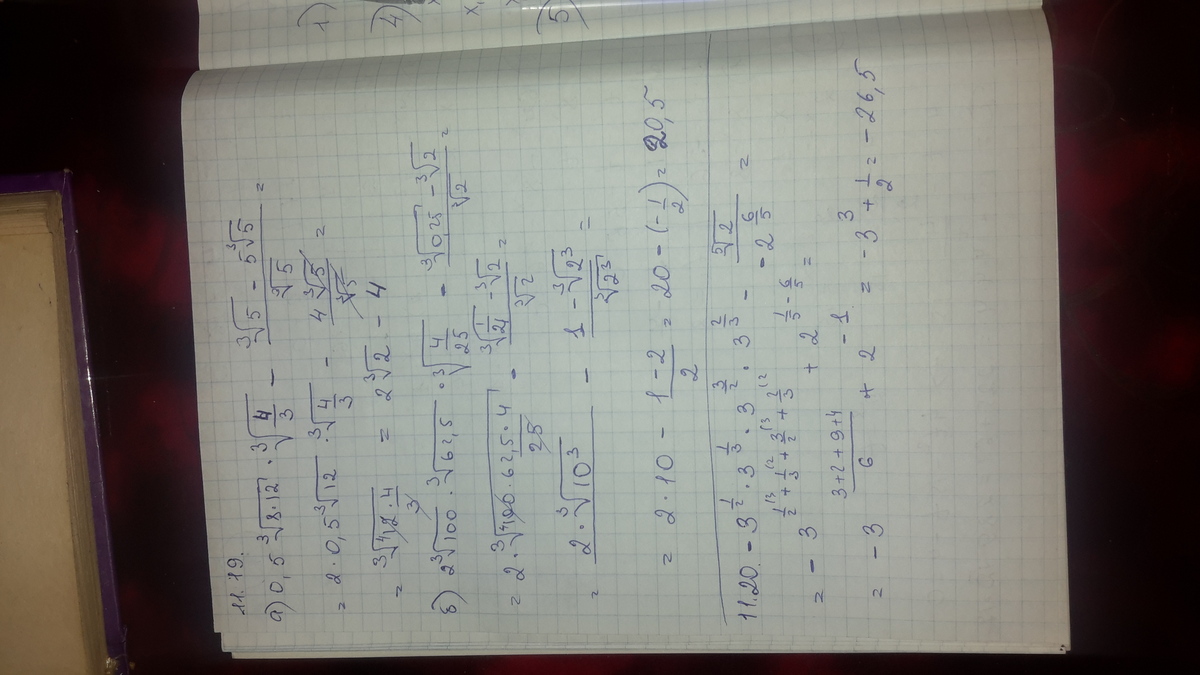 1)
4)
5)
11.19.
а) 0,5 ∛(8·12) · ∛(4/3) - (∛5 - 5∛5)/∛5 =
= 2 · 0,5 ∛12 · ∛(4/3) - 4∛5/∛5 =
= ∛(12·4/3) = 2∛2 - 4
б) 2∛100 · ∛62,5 · ∛(4/25) - (∛0,25 - ∛2)/∛2 =
= 2 · ∛(100·62,5·4/25) - (∛(1/4) - ∛2)/∛2 =
= 2 · ∛(10³) - (1 - ∛(2³))/∛(2³) =
= 2 · 10 - (1-2)/2 = 20 - (-1/2) = 20,5
11.20 - 3^(1/2) · 3^(1/3) · 3^(3/2) · 3^(2/3) - ⁵√2/(-2^(6/5)) =
= - 3^(1/2 + 1/3 + 3/2 + 2/3) + 2^(1/5 - 6/5) =
= - 3^((3+2+9+4)/6) + 2^(-1) = - 3³ + 1/2 = - 26,5